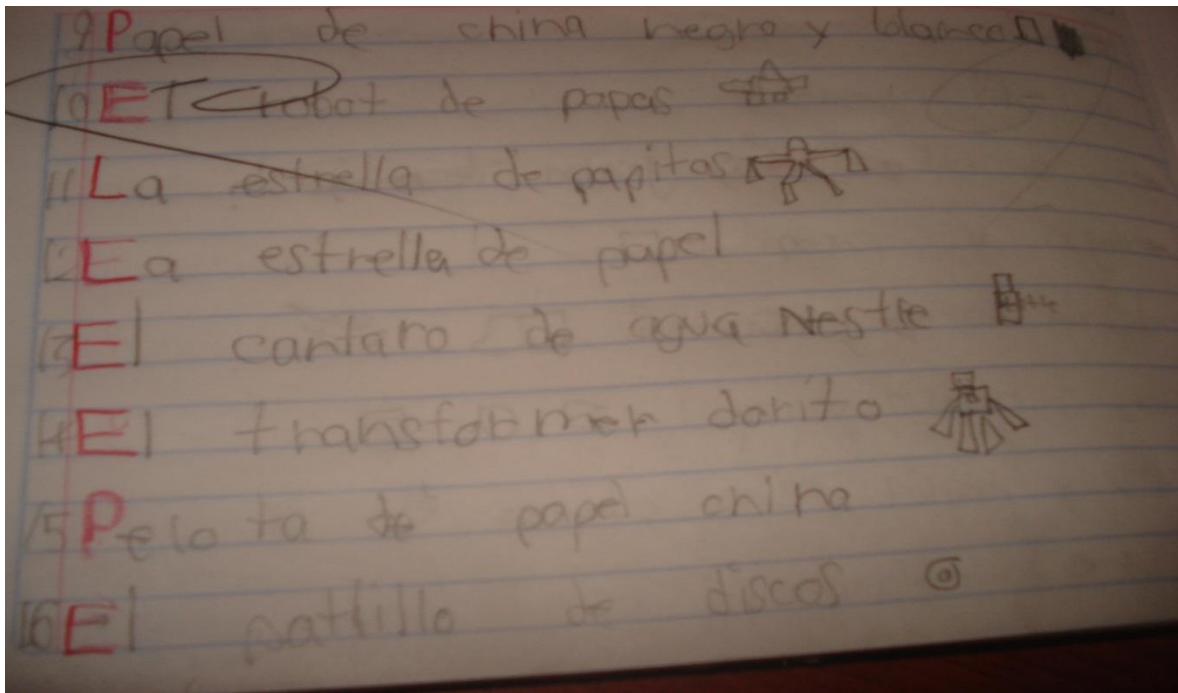 9 Papel de china negro y blanco
10 El robot de papas
11 La estrella de papitas
12 La estrella de papel
13 El cantaro de agua Nestle
14 El transformer dorito
15 Pelota de papel china
16 El de discos